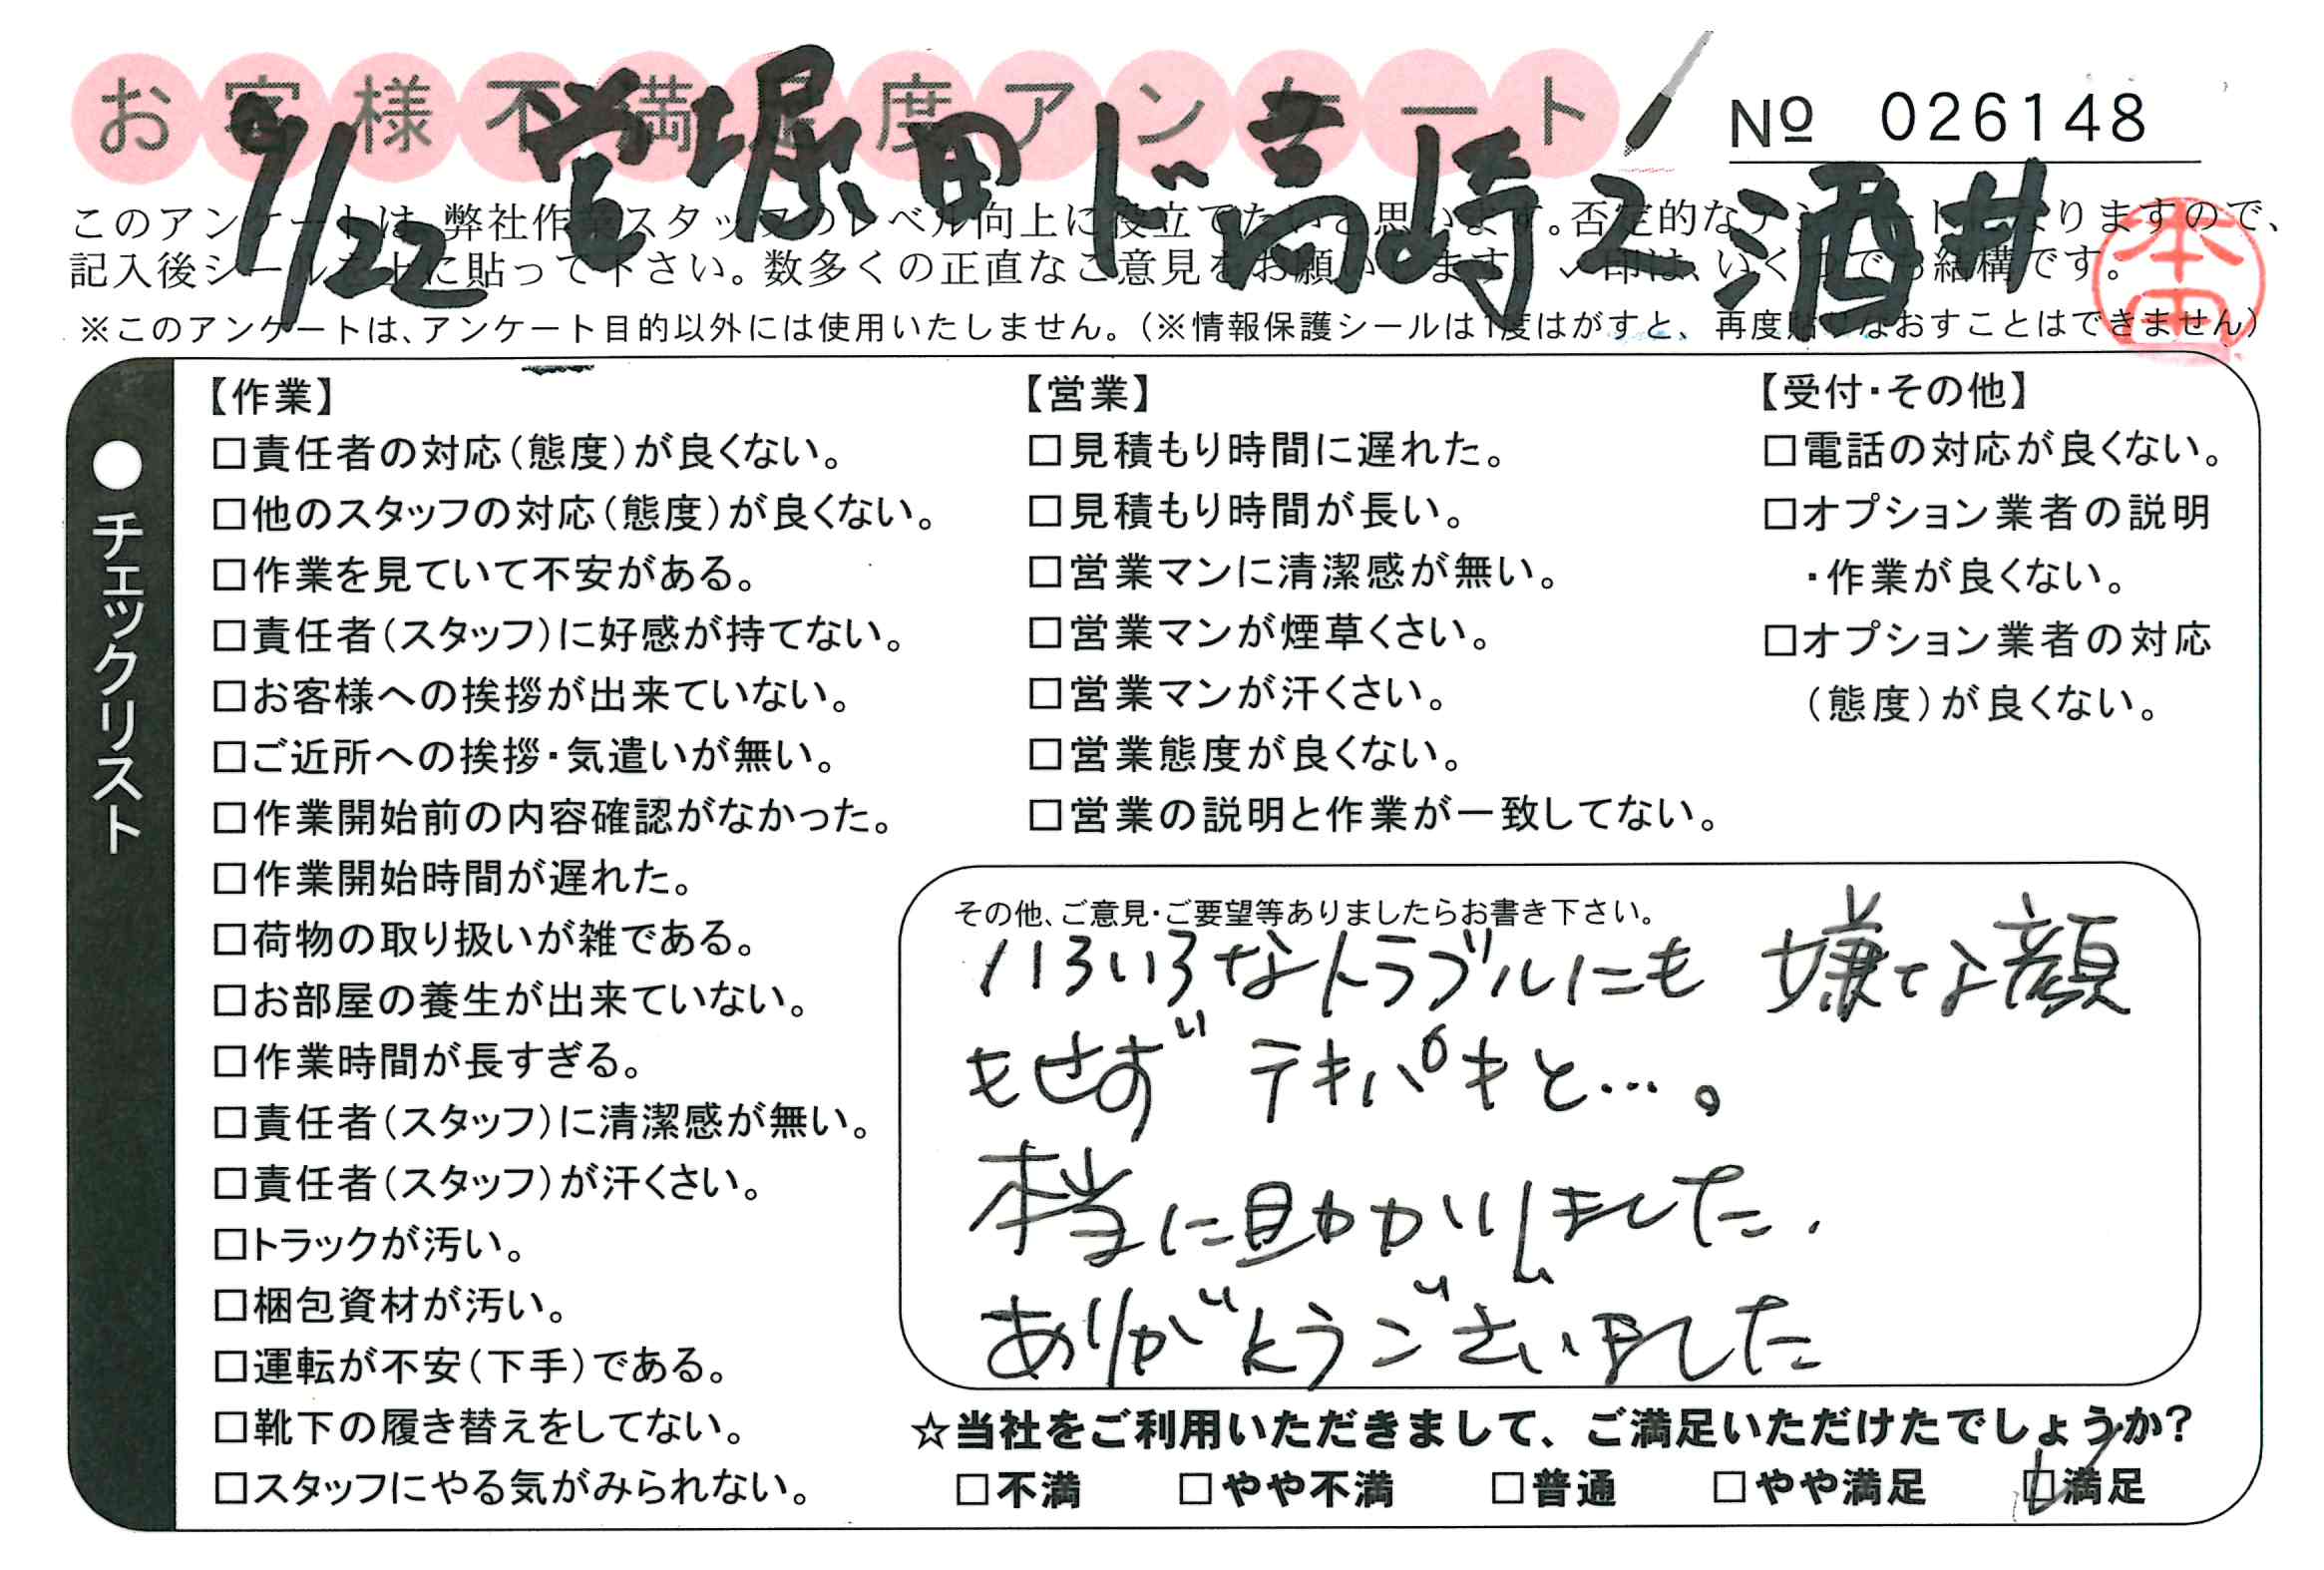 お客様不満足度アンケート
№ 026148
9/22 営堀田 ド高崎 2酒井
このアンケートは、弊社作業スタッフのレベル向上に役立てたいと思います。否定的なアンケートになりますので、
記入後シールを上に貼って下さい。数多くの正直なご意見をお願いします。✓印は、いくつでも結構です。
※このアンケートは、アンケート目的以外には使用いたしません。(※情報保護シールは1度はがすと、再度貼りなおすことはできません)
本田
●チェックリスト
【作業】
□責任者の対応(態度)が良くない。
□他のスタッフの対応(態度)が良くない。
□作業を見ていて不安がある。
□責任者(スタッフ)に好感が持てない。
□お客様への挨拶が出来ていない。
□ご近所への挨拶・気遣いが無い。
□作業開始前の内容確認がなかった。
□作業開始時間が遅れた。
□荷物の取り扱いが雑である。
□お部屋の養生が出来ていない。
□作業時間が長すぎる。
□責任者(スタッフ)に清潔感が無い。
□責任者(スタッフ)が汗くさい。
□トラックが汚い。
□梱包資材が汚い。
□運転が不安(下手)である。
□靴下の履き替えをしてない。
□スタッフにやる気がみられない。
【営業】
□見積もり時間に遅れた。
□見積もり時間が長い。
□営業マンに清潔感が無い。
□営業マンが煙草くさい。
□営業マンが汗くさい。
□営業態度が良くない。
□営業の説明と作業が一致してない。
【受付・その他】
□電話の対応が良くない。
□オプション業者の説明
・作業が良くない。
□オプション業者の対応
(態度)が良くない。
その他、ご意見・ご要望等ありましたらお書き下さい。
いろいろなトラブルにも 嫌な顔
もせず テキパキと…。
本当に助かりました.
ありがとうございました
☆当社をご利用いただきまして、ご満足いただけたでしょうか?
□不満 □やや不満 □普通 □やや満足 ☑満足